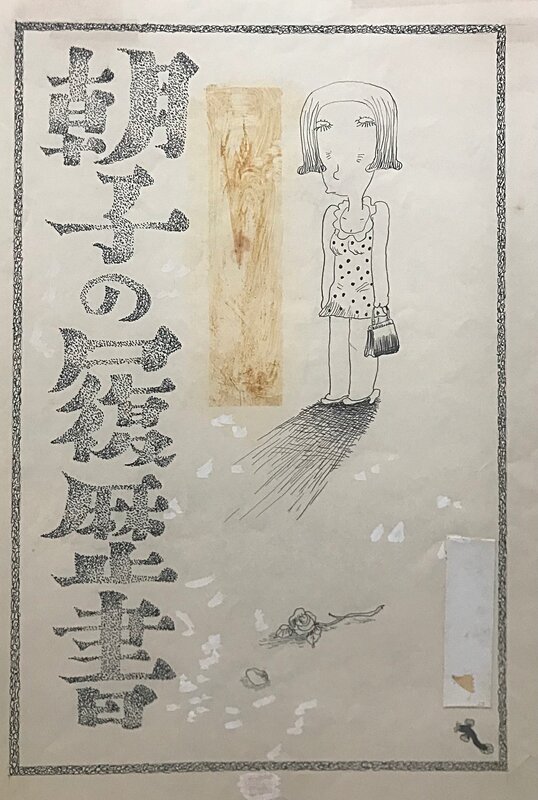 朝子の履歴書